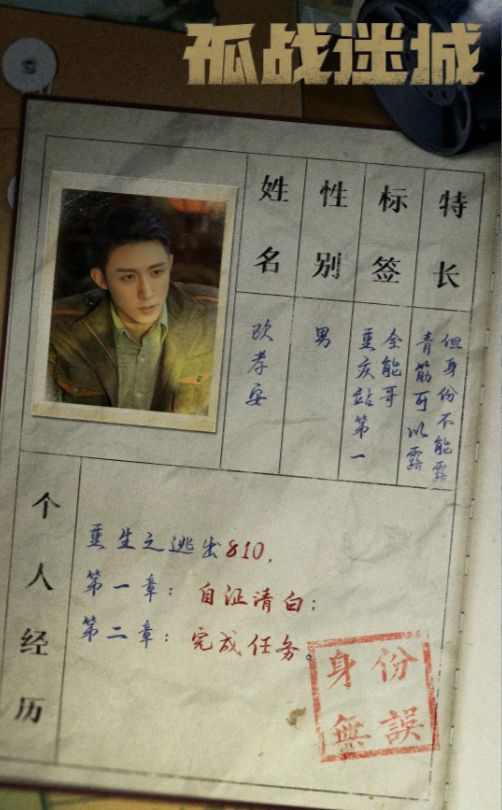 孤战迷城
姓名
性别
标签
特长
欧孝安
男
重庆站第一
全能哥
青筋可以露
但身份不能露
个人经历
重生之逃出810，
第一章：自证清白；
第二章：完成任务。
身份
無誤